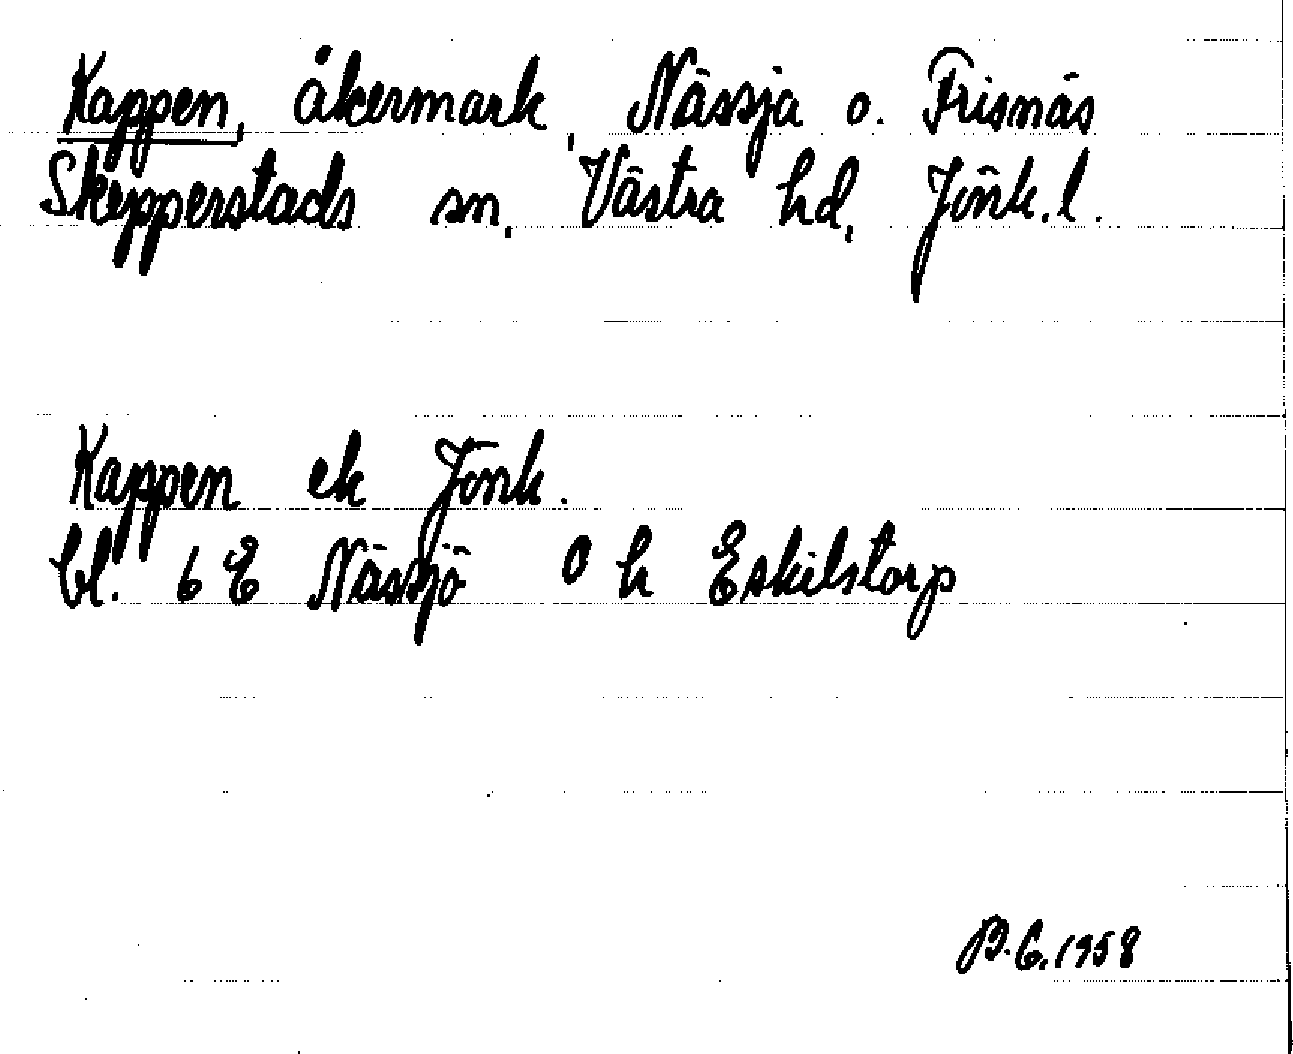 Kappen, åkermark, Nässja o. Frisnäs
Skepperstads sn, Västra hd, Jönk.l.
Kappen ek Jönk.
bl. 6 E Nässjö O h Eskilstorp
B.E. 1958